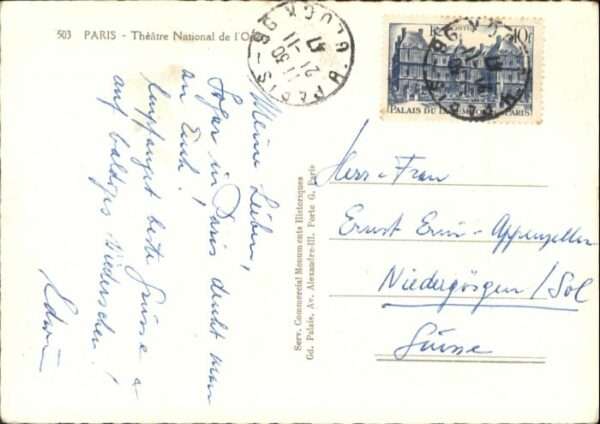 503 PARIS - Théâtre National de l'O
PARIS
11 30
21 11
47
RF POSTES 10F
PALAIS DU LUXEMBOURG - PARIS
Meine Lieben,
Sogar in Paris denkt man
an Euch!
Empfanget beste Grüsse &
auf baldiges Wiedersehen!
Edwin
Serv. Commercial Monuments Historiques
Gd. Palais, Av. Alexandre-III. Porte G. Paris
Herr & Frau
Ernst Erni-Appenzeller
Niedergösgen/Sol
Suisse